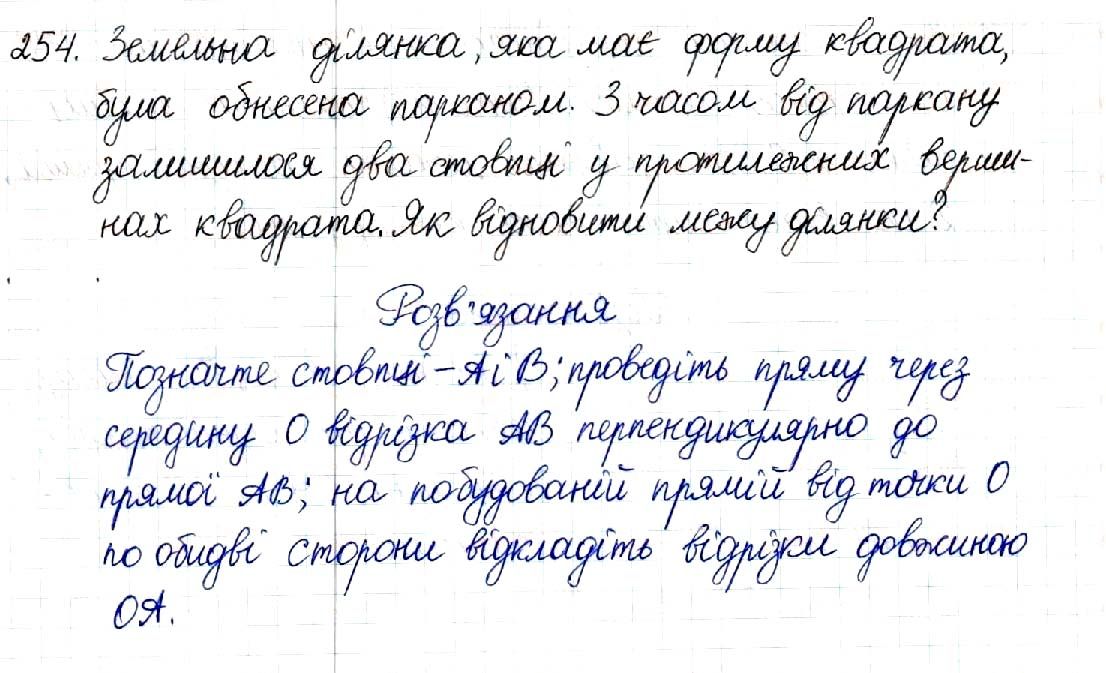 254. Земельна ділянка, яка має форму квадрата,
була обнесена парканом. З часом від паркану
залишилося два стовпці у протилежних верши-
нах квадрата. Як відновити межу ділянки?
Розв'язання
Позначте стовпці - А і В; проведіть пряму через
середину О відрізка АВ перпендикулярно до
прямої АВ; на побудованій прямій від точки О
по обидві сторони відкладіть відрізки довжиною
ОА.